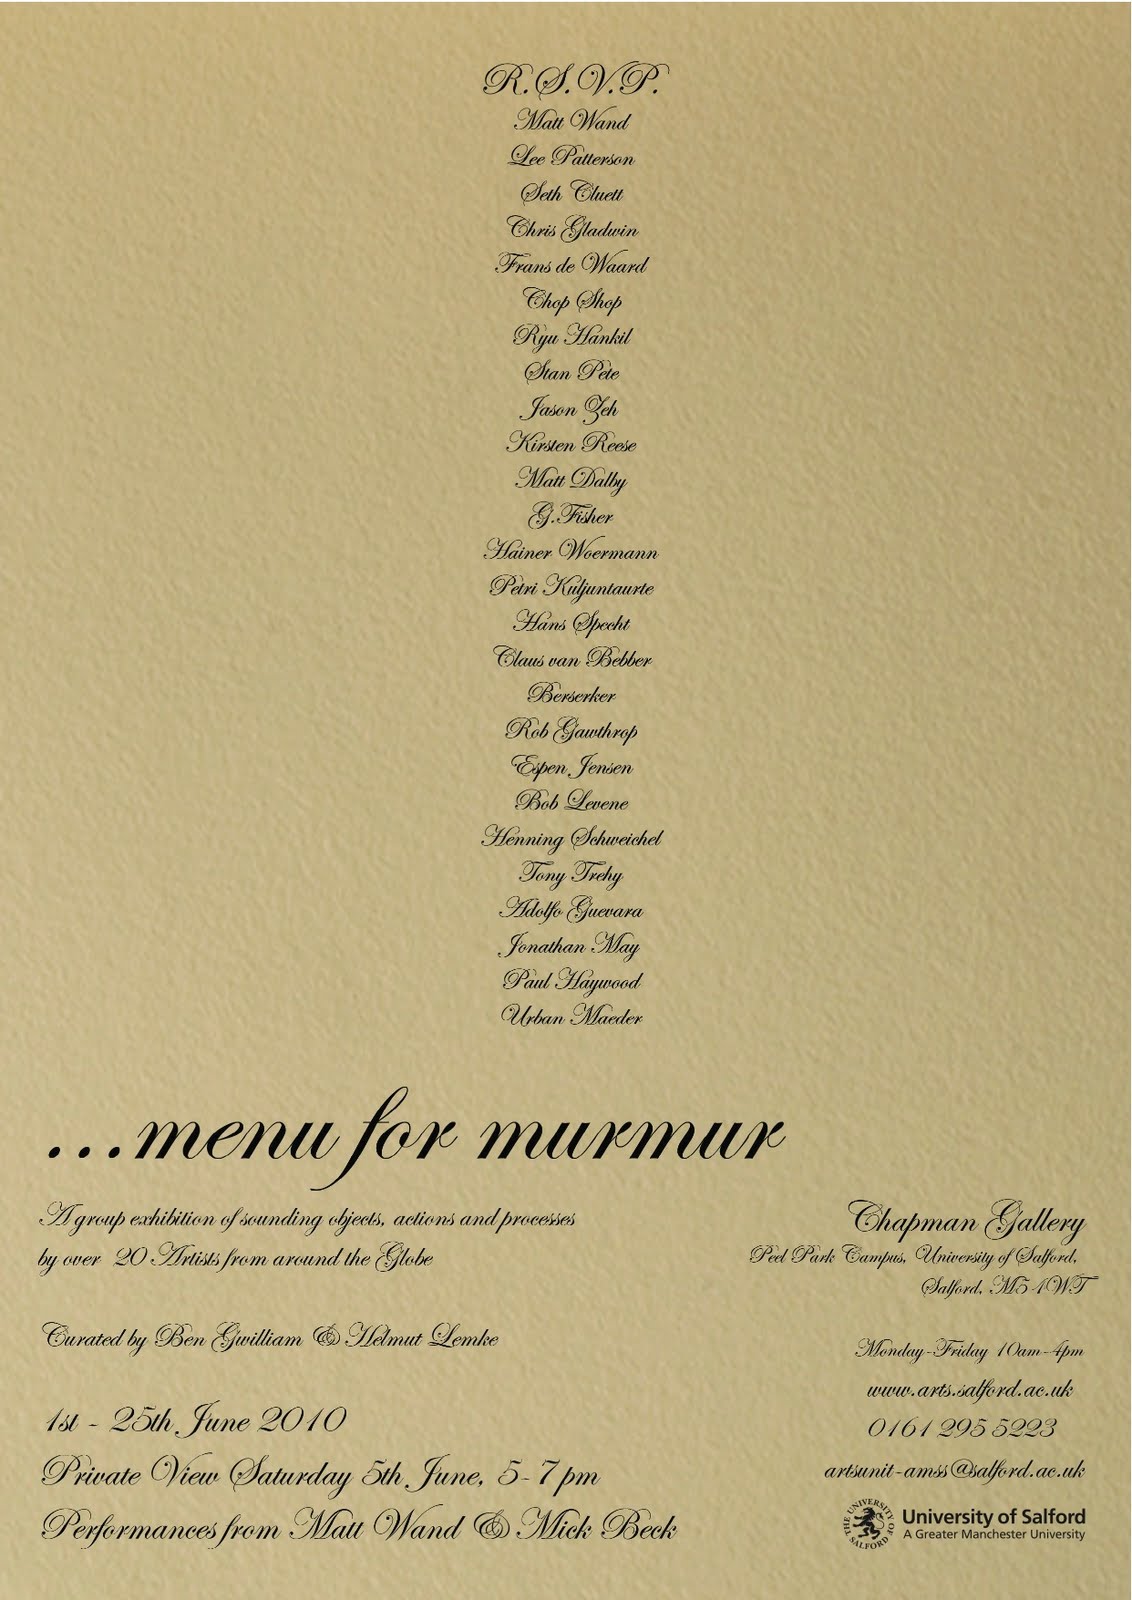 R.S.V.P.
Matt Wand
Lee Patterson
Seth Cluett
Chris Gladwin
Frans de Waard
Chop Shop
Ryu Hankil
Stan Pete
Jason Zeh
Kirsten Reese
Matt Dalby
G.Fisher
Hainer Woermann
Petri Kuljuntaurte
Hans Specht
Claus van Bebber
Berserker
Rob Gawthrop
Espen Jensen
Bob Levene
Henning Schweichel
Tony Trehy
Adolfo Guevara
Jonathan May
Paul Haywood
Urban Maeder
...menu for murmur
A group exhibition of sounding objects, actions and processes
by over 20 Artists from around the Globe
Curated by Ben Gwilliam & Helmut Lemke
1st - 25th June 2010
Private View Saturday 5th June, 5-7pm
Performances from Matt Wand & Mick Beck
Chapman Gallery
Peel Park Campus, University of Salford,
Salford, M5 4WT
Monday-Friday 10am-4pm
www.arts.salford.ac.uk
0161 295 5223
artsunit-amss@salford.ac.uk
THE UNIVERSITY OF SALFORD
University of Salford
A Greater Manchester University